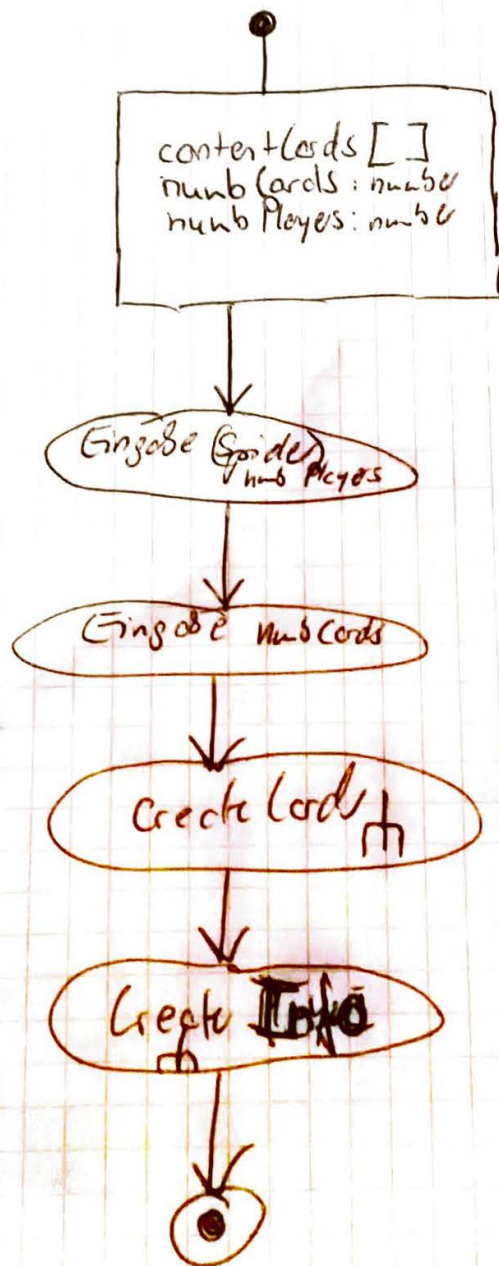 contentCards []
numbCards: number
numbPlayers: number
Eingabe (Spieler)
numb Players
Eingabe numbCards
Create Cards
Create Info